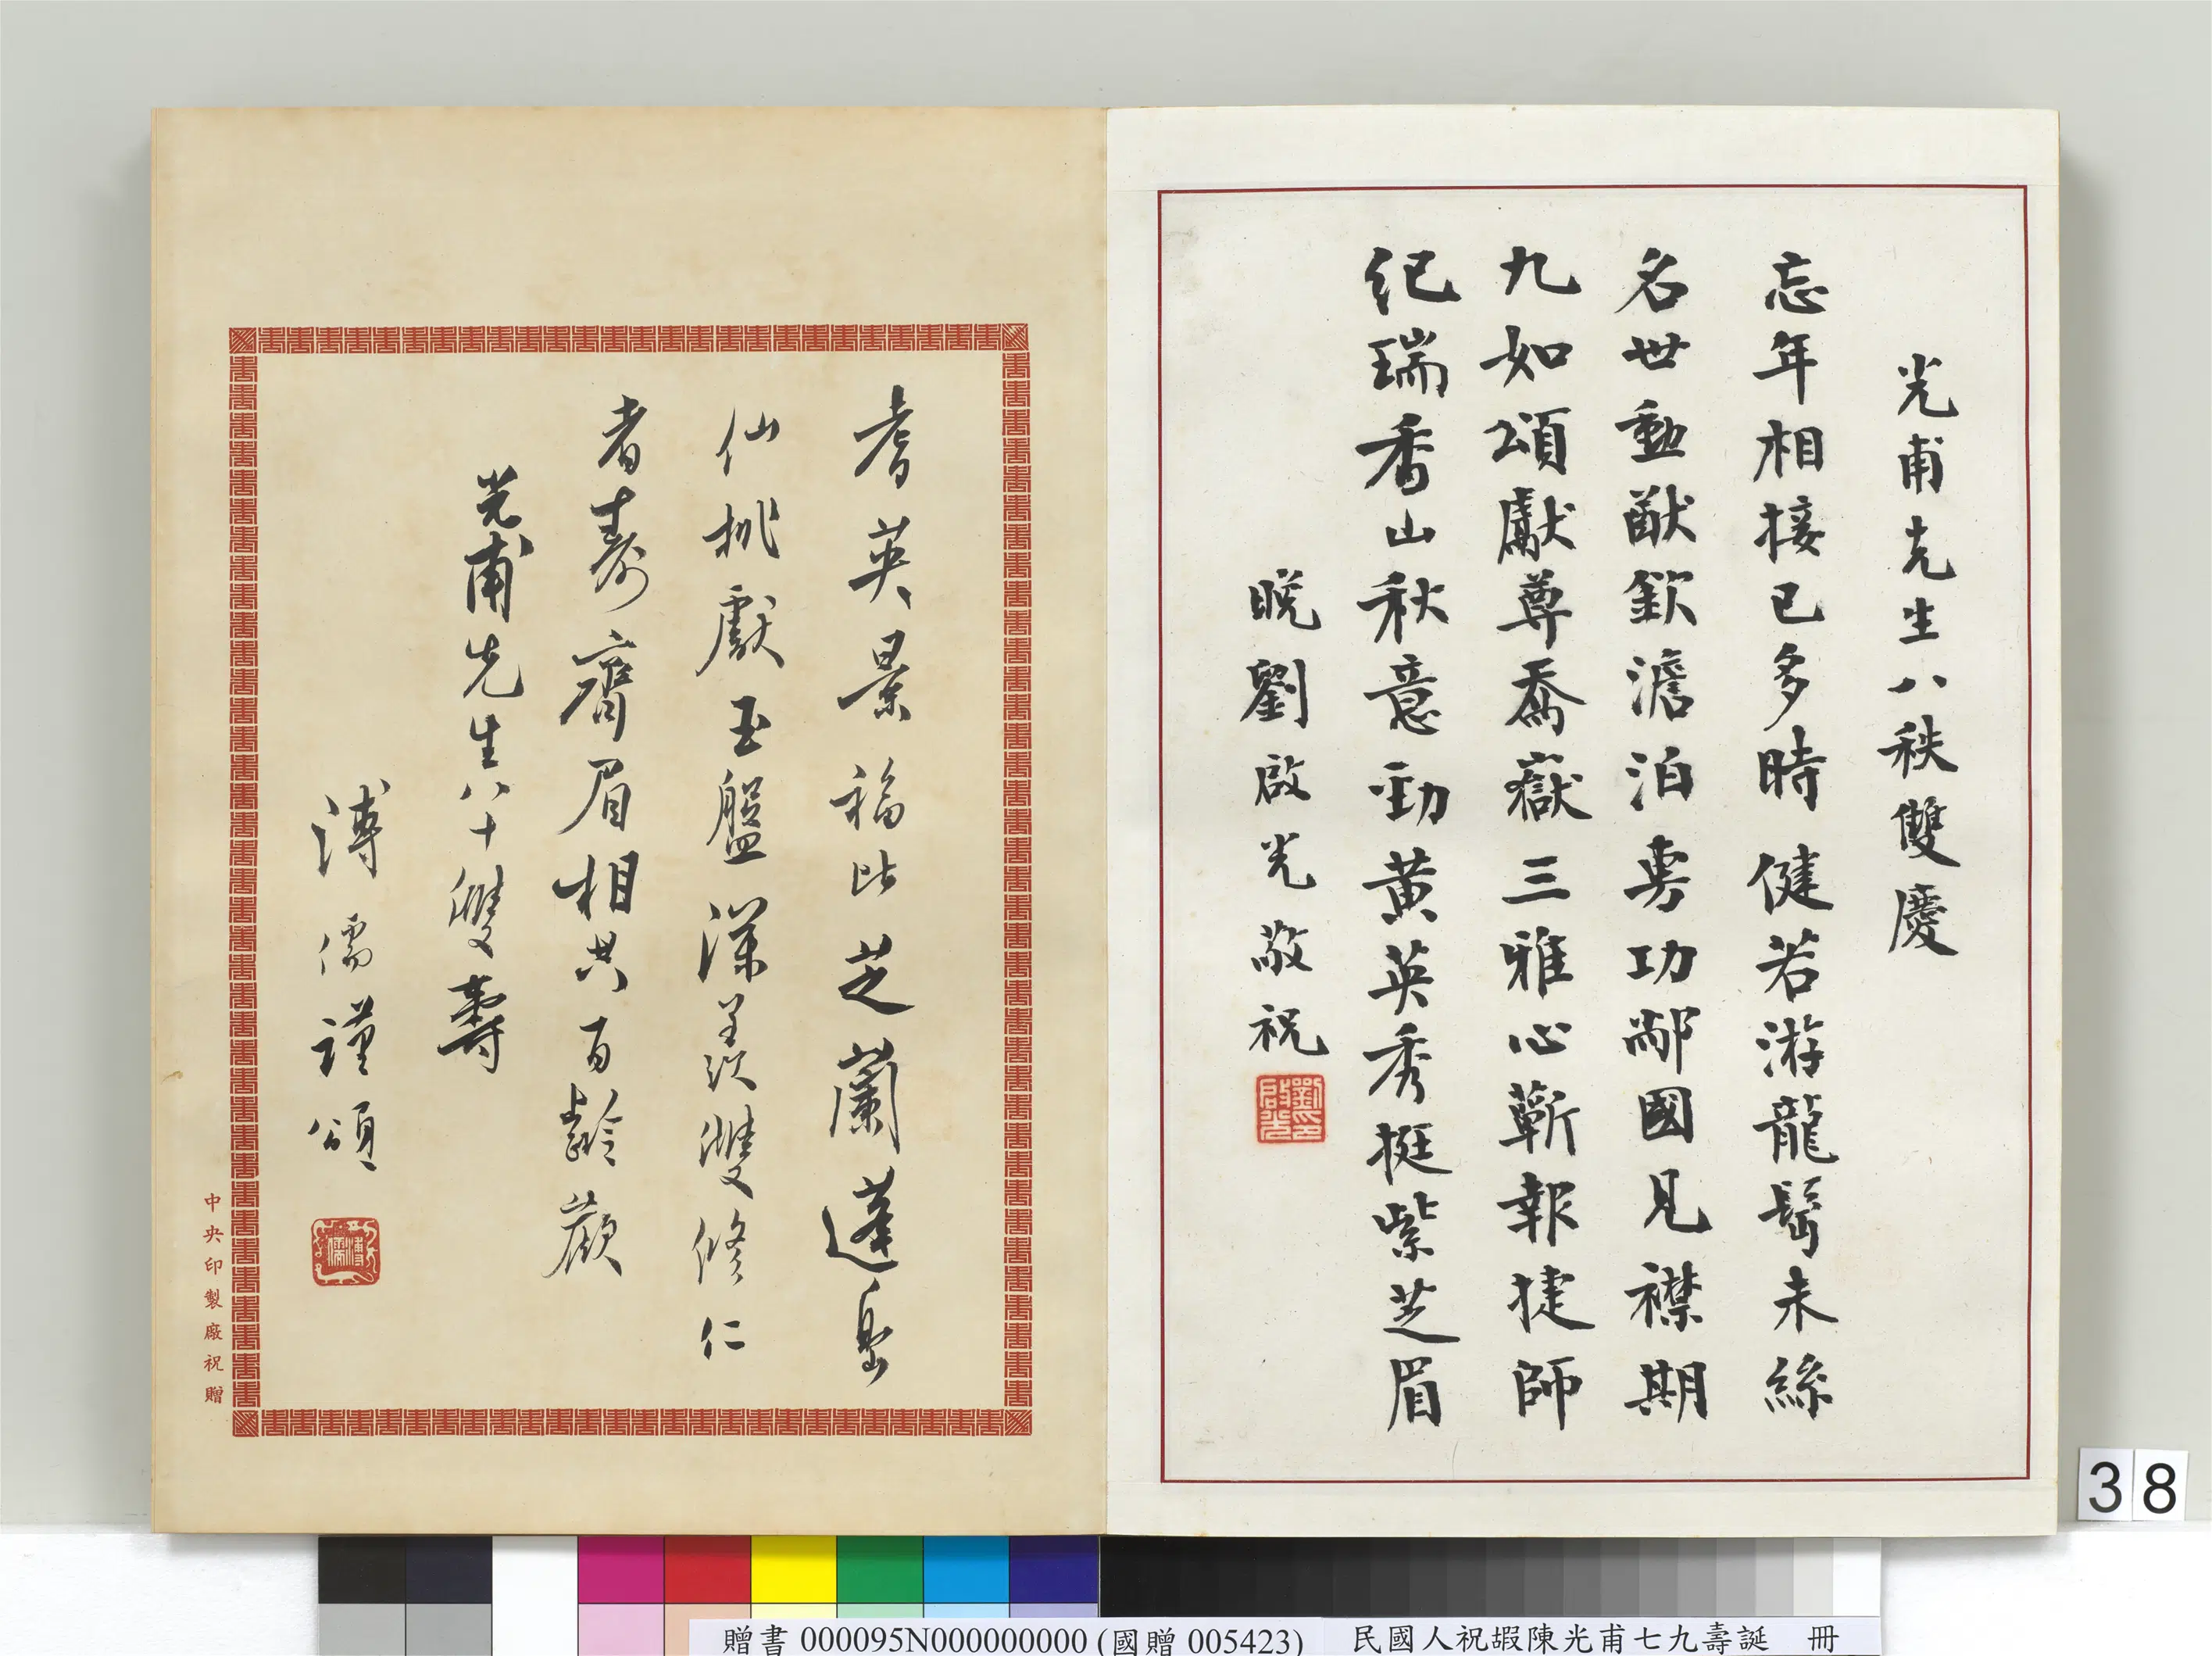 光甫先生八秩雙慶
忘年相接已多時健若游龍鬢未絲
名世勳猷欽澹泊專功鄰國見襟期
九如頌獻尊喬嶽三雅心蘄報捷師
紀瑞香山秋意勁黃英秀挺紫芝眉
晚劉啟光敬祝
劉啟光印
耆英景福比芝蘭蓬島
仙桃獻玉盤深羨雙修仁
者壽齊眉相共百齡歡
光甫先生八十雙壽
溥儒謹頌
溥儒
中央印製廠祝贈
38
贈書 000095N000000000 (國贈 005423) 民國人祝嘏陳光甫七九壽誕 冊